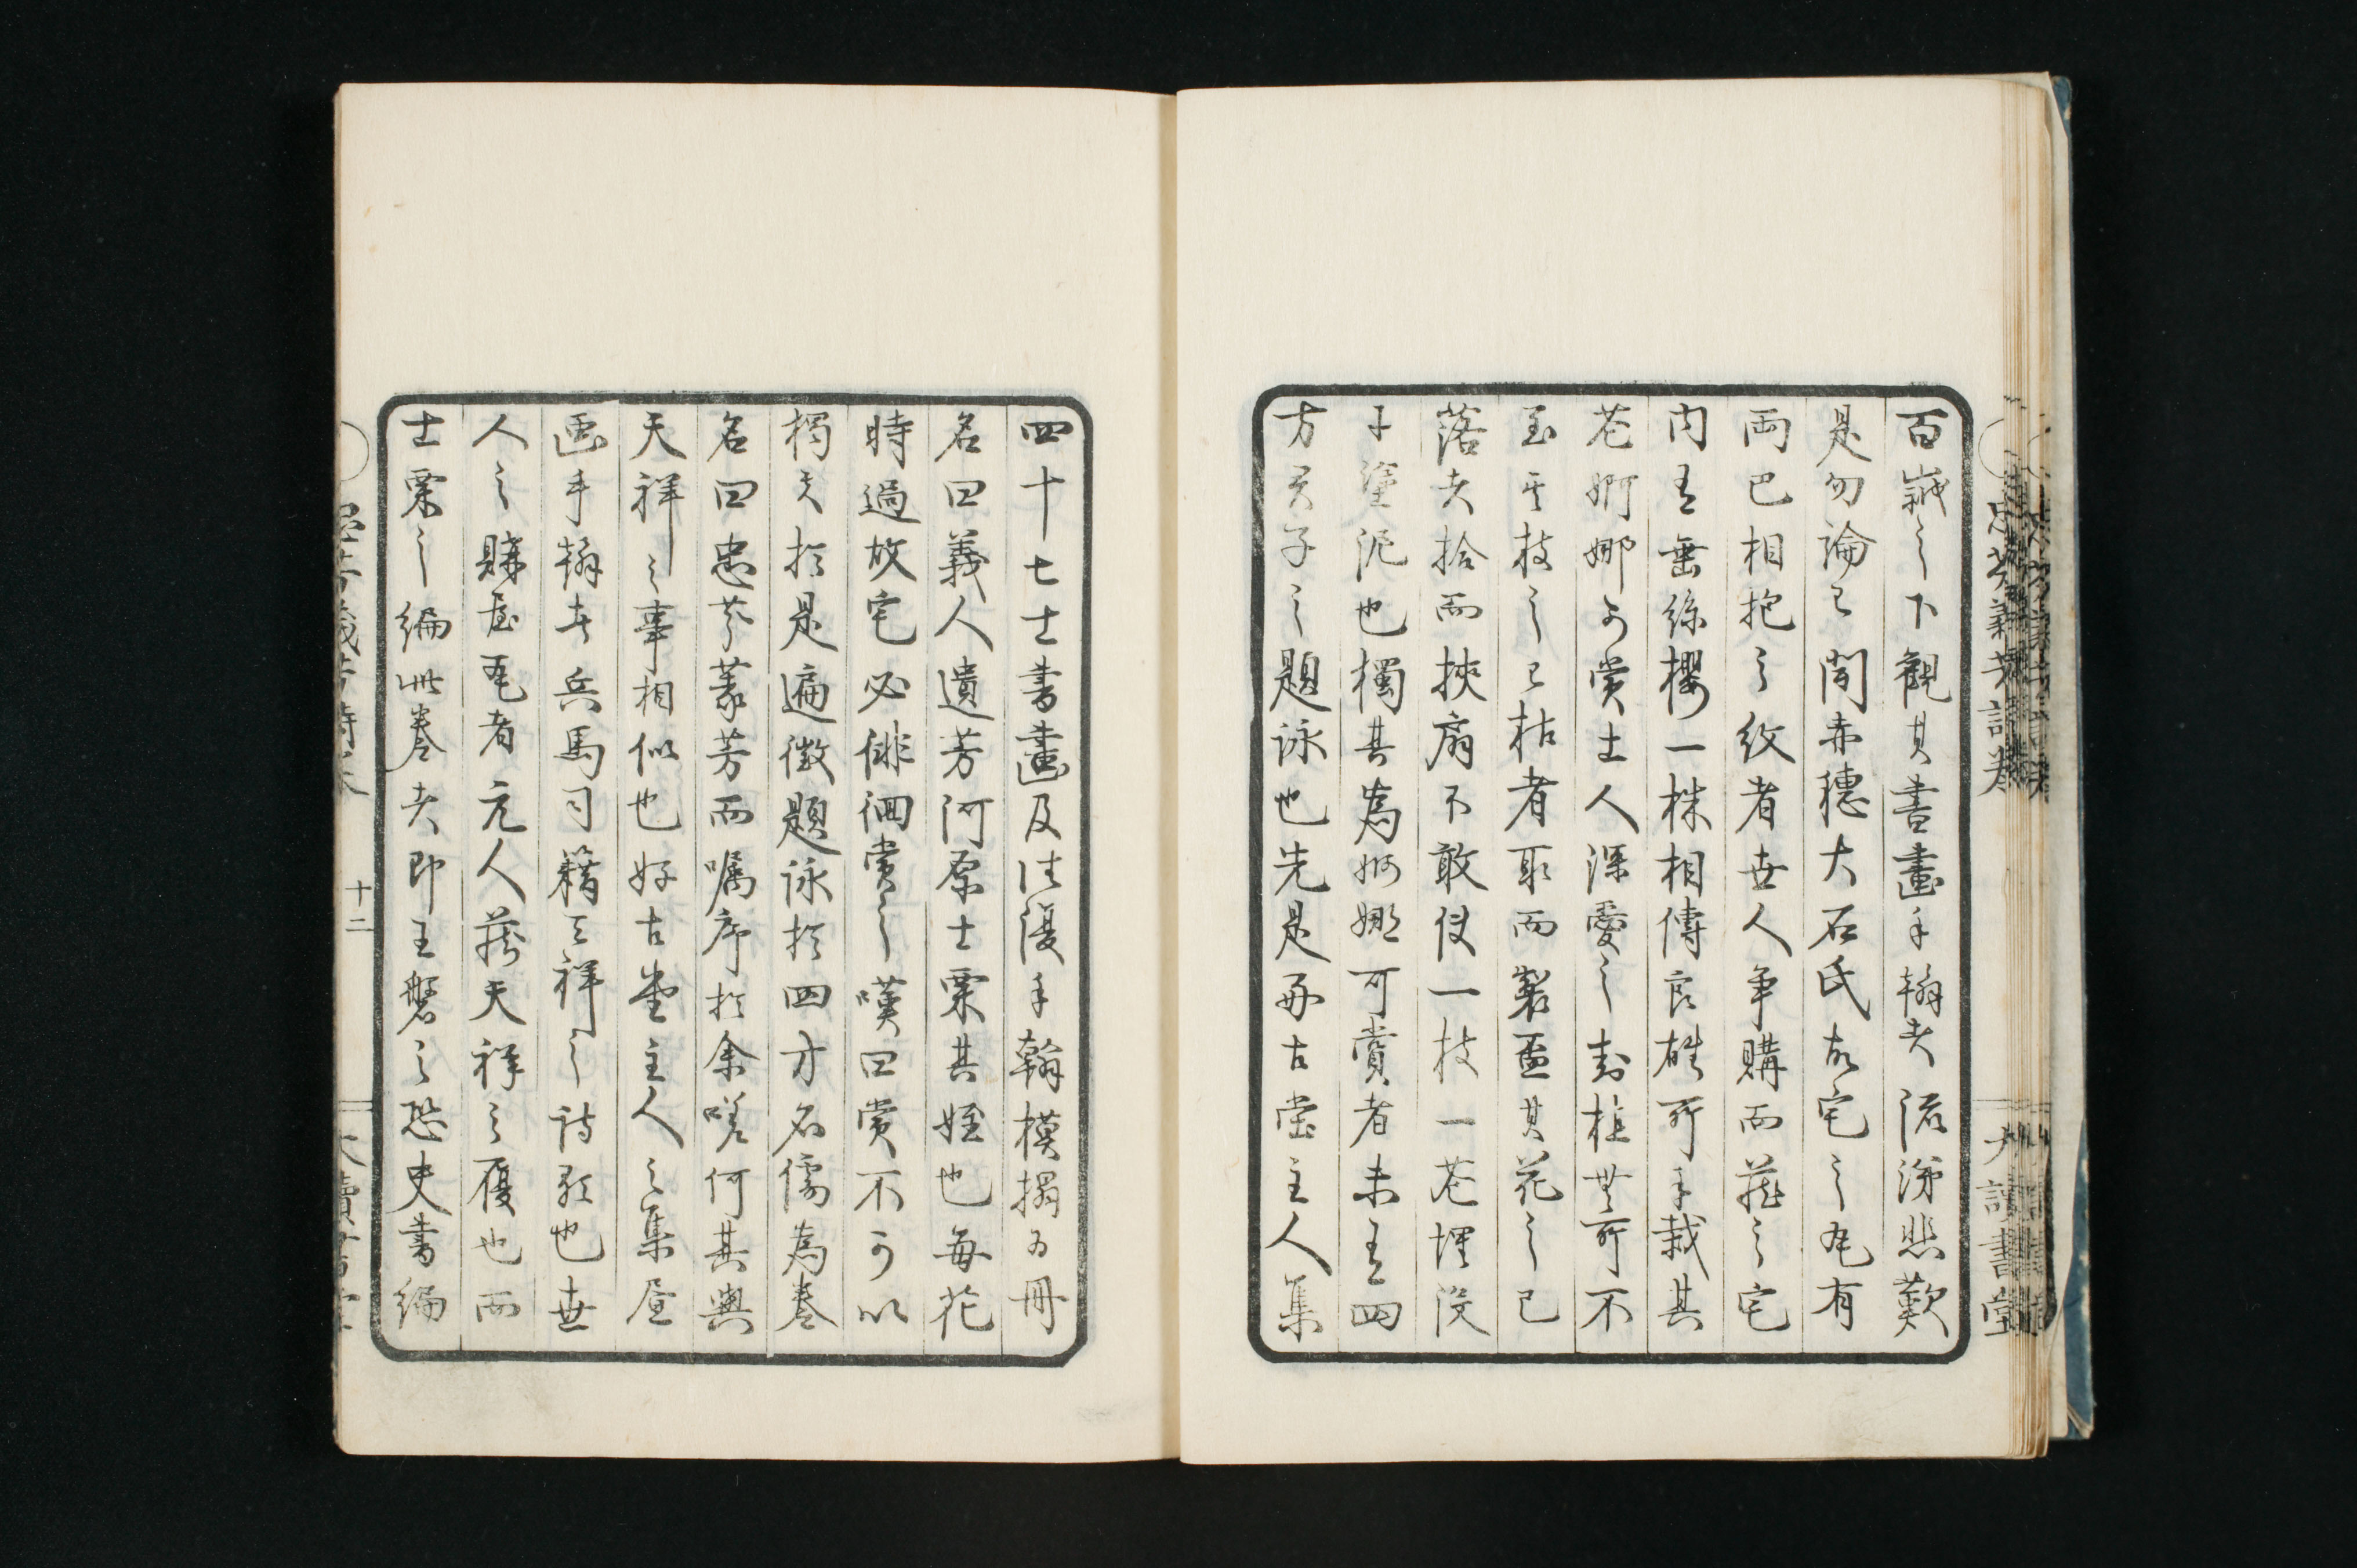 百歳之下觀其書畫手翰者流涕悲歎
是勿論已聞赤穗大石氏故宅之瓦有
両巴相抱之紋者世人争購而藏之宅
内有垂絲櫻一株相傳良雄所手栽其
花婀娜可賞土人深愛之封植無所不
至其枝之已枯者取而製盃其花之已
落者拾而挾扇不敢使一枝一花埋没
于塗泥也獨其為婀娜可賞者未有四
方君子之題詠也先是好古堂主人集
忠芬義芳詩巻
大讀書堂
四十七士書畫及往復手翰模搨為冊
名曰義人遺芳河原士栗其姪也毎花
時過故宅必俳徊賞之嘆曰賞不可以
獨矣於是遍徴題詠於四方名儒為巻
名曰忠芬義芳而嘱序於余嗟何其與
天祥之事相似也好古堂主人之集屋
画手翰者兵馬司籍天祥之詩歌也世
人之購屋瓦者元人藏天祥之履也而
士栗之編此巻者即王磐之恐史書編
忠芬義芳詩巻
十二
大讀書堂